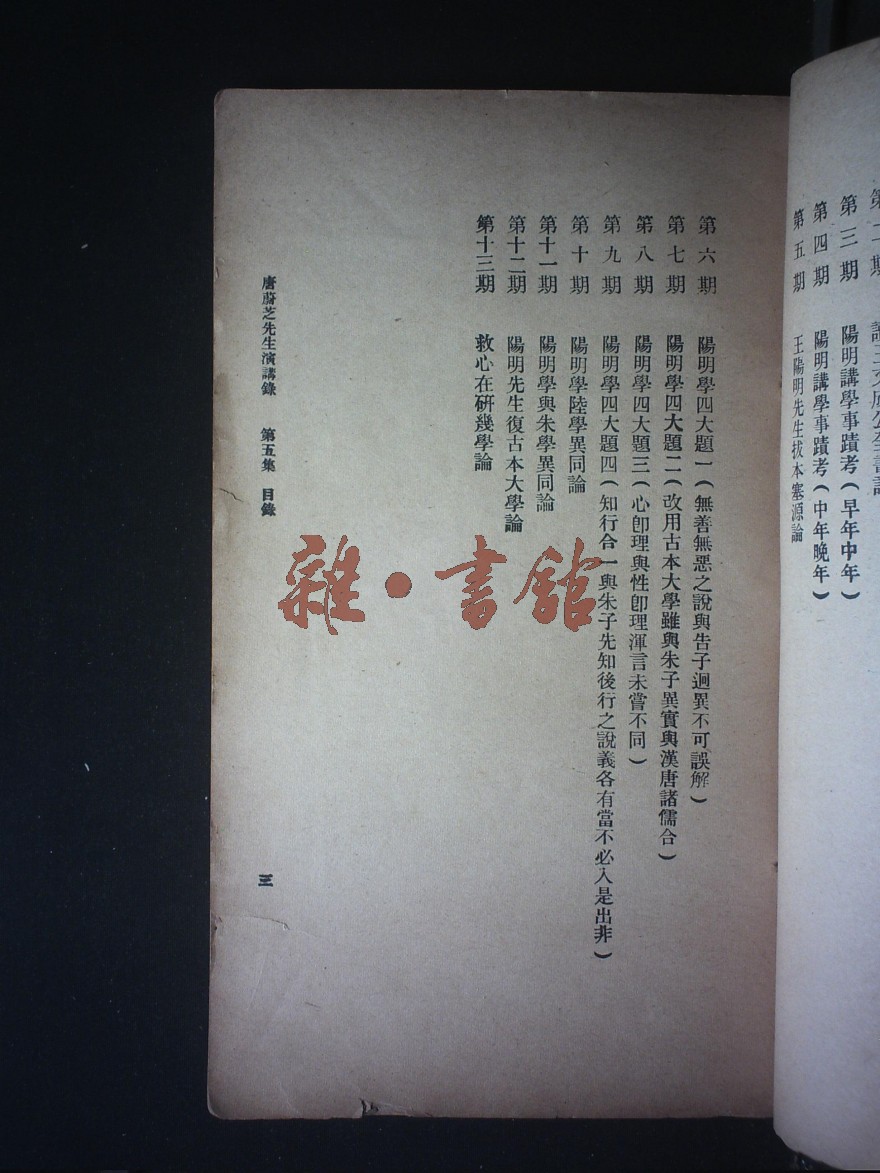 第三期　陽明講學事蹟考（早年中年）
第四期　陽明講學事蹟考（中年晚年）
第五期　王陽明先生拔本塞源論
第六期　陽明學四大題一（無善無惡之說與告子迥異不可誤解）
第七期　陽明學四大題二（改用古本大學雖與朱子異實與漢唐諸儒合）
第八期　陽明學四大題三（心卽理與性卽理渾言未嘗不同）
第九期　陽明學四大題四（知行合一與朱子先知後行之說義各有當不必入是出非）
第十期　陽明學陸學異同論
第十一期　陽明學與朱學異同論
第十二期　陽明先生復古本大學論
第十三期　救心在研幾學論
唐蔚芝先生演講錄　第五集　目錄
三
雜·書館